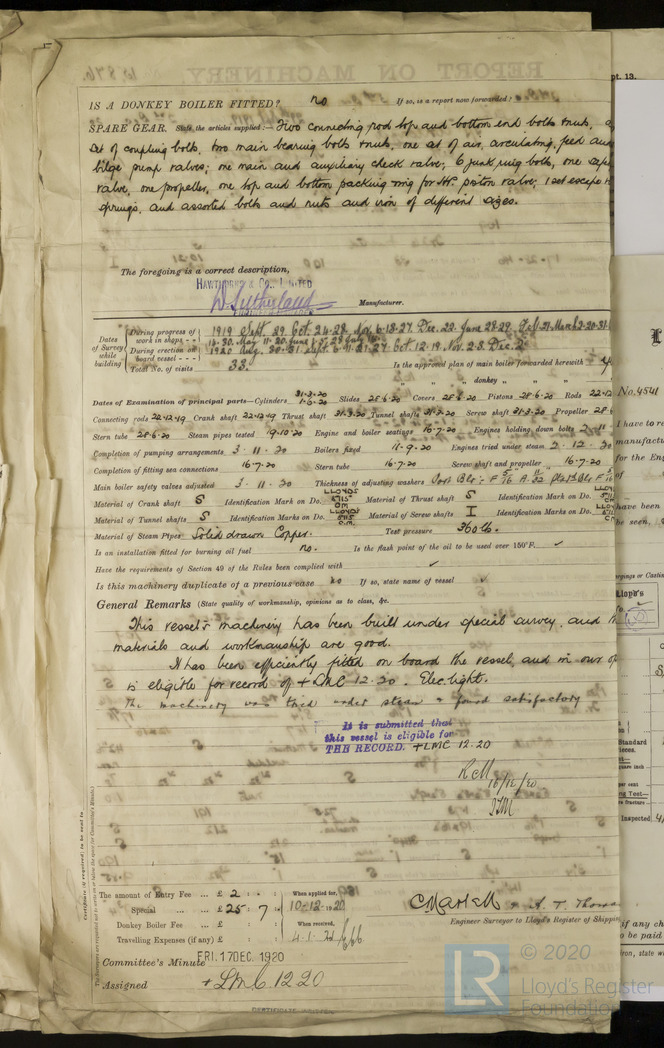 IS A DONKEY BOILER FITTED? no If so, is a report now forwarded?
SPARE GEAR. State the articles supplied:— Two connecting rod top and bottom end bolts & nuts, a
set of coupling bolts, two main bearing bolts & nuts, one set of air, circulating, feed and
bilge pump valves; one main and auxiliary check valve; 6 junk ring bolts, one
valve, one propeller, one top and bottom packing ring for H.P. piston valve; 1 set escape
springs, and assorted bolts and nuts and iron of different sizes.
The foregoing is a correct description,
HAWTHORNS & Co., LIMITED
D Sutherland Manufacturer.
Dates of Survey while building
During progress of work in shops - - 1919 Sept. 29. Oct. 24-28. Nov. 6-18-27. Dec. 22.
During erection on board vessel - - - 1920 Aug. 30-31 Sept. Oct. 12-19. Nov. 2-3. Dec. 2
Total No. of visits 33. Is the approved plan of main boiler forwarded herewith
" " " donkey " "
Dates of Examination of principal parts—Cylinders 31-3-20 1-6-20 Slides 28-6-20 Covers 28-6-20 Pistons 28-6-20 Rods 22-12
Connecting rods 22-12-19 Crank shaft 22-12-19 Thrust shaft 31-3-20 Tunnel shafts 31-3-20 Screw shaft 31-3-20 Propeller 28-
Stern tube 28-6-20 Steam pipes tested 19-10-20 Engine and boiler seatings 16-7-20 Engines holding down bolts 2-11
Completion of pumping arrangements 3-11-20 Boilers fixed 11-9-20 Engines tried under steam 2-12-20
Completion of fitting sea connections 16-7-20 Stern tube 16-7-20 Screw shaft and propeller 16-7-20
Main boiler safety valves adjusted 3-11-20 Thickness of adjusting washers
Material of Crank shaft S Identification Mark on Do. LLOYDS 5715 Material of Thrust shaft S Identification Mark on Do.
Material of Tunnel shafts S Identification Marks on Do. LLOYDS 5715 Material of Screw shaft I Identification Marks on Do.
Material of Steam Pipes Solid drawn Copper. Test pressure 360 lb.
Is an installation fitted for burning oil fuel no. Is the flash point of the oil to be used over 150°F. ✓
Have the requirements of Section 49 of the Rules been complied with ✓
Is this machinery duplicate of a previous case no If so, state name of vessel ✓
General Remarks (State quality of workmanship, opinions as to class, &c.
This vessel's machinery has been built under special survey, and
materials and workmanship are good.
It has been efficiently fitted on board the vessel, and in our
is eligible for record of + LMC 12.20. Elec. light.
The machinery was tried under steam & found satisfactory
It is submitted that
this vessel is eligible for
THE RECORD. + LMC 12.20
16/12/20
The amount of Entry Fee ... £ 2 : - : When applied for,
Special ... ... £ 25 : 7 : 10-12-1920
Donkey Boiler Fee ... £ : : When received,
Travelling Expenses (if any) £ : : 4.1.21
Engineer Surveyor to Lloyd's Register of Shipping
Committee's Minute FRI. 17 DEC. 1920
Assigned + LMC 12.20
pt. 13.
No. 4541
I have to re
manufactu
for the Eng
of
have been
be seen,
Lloyd's
Standard
Inspected
if any ch
to be paid
© 2020
LR Lloyd's Register
Foundation